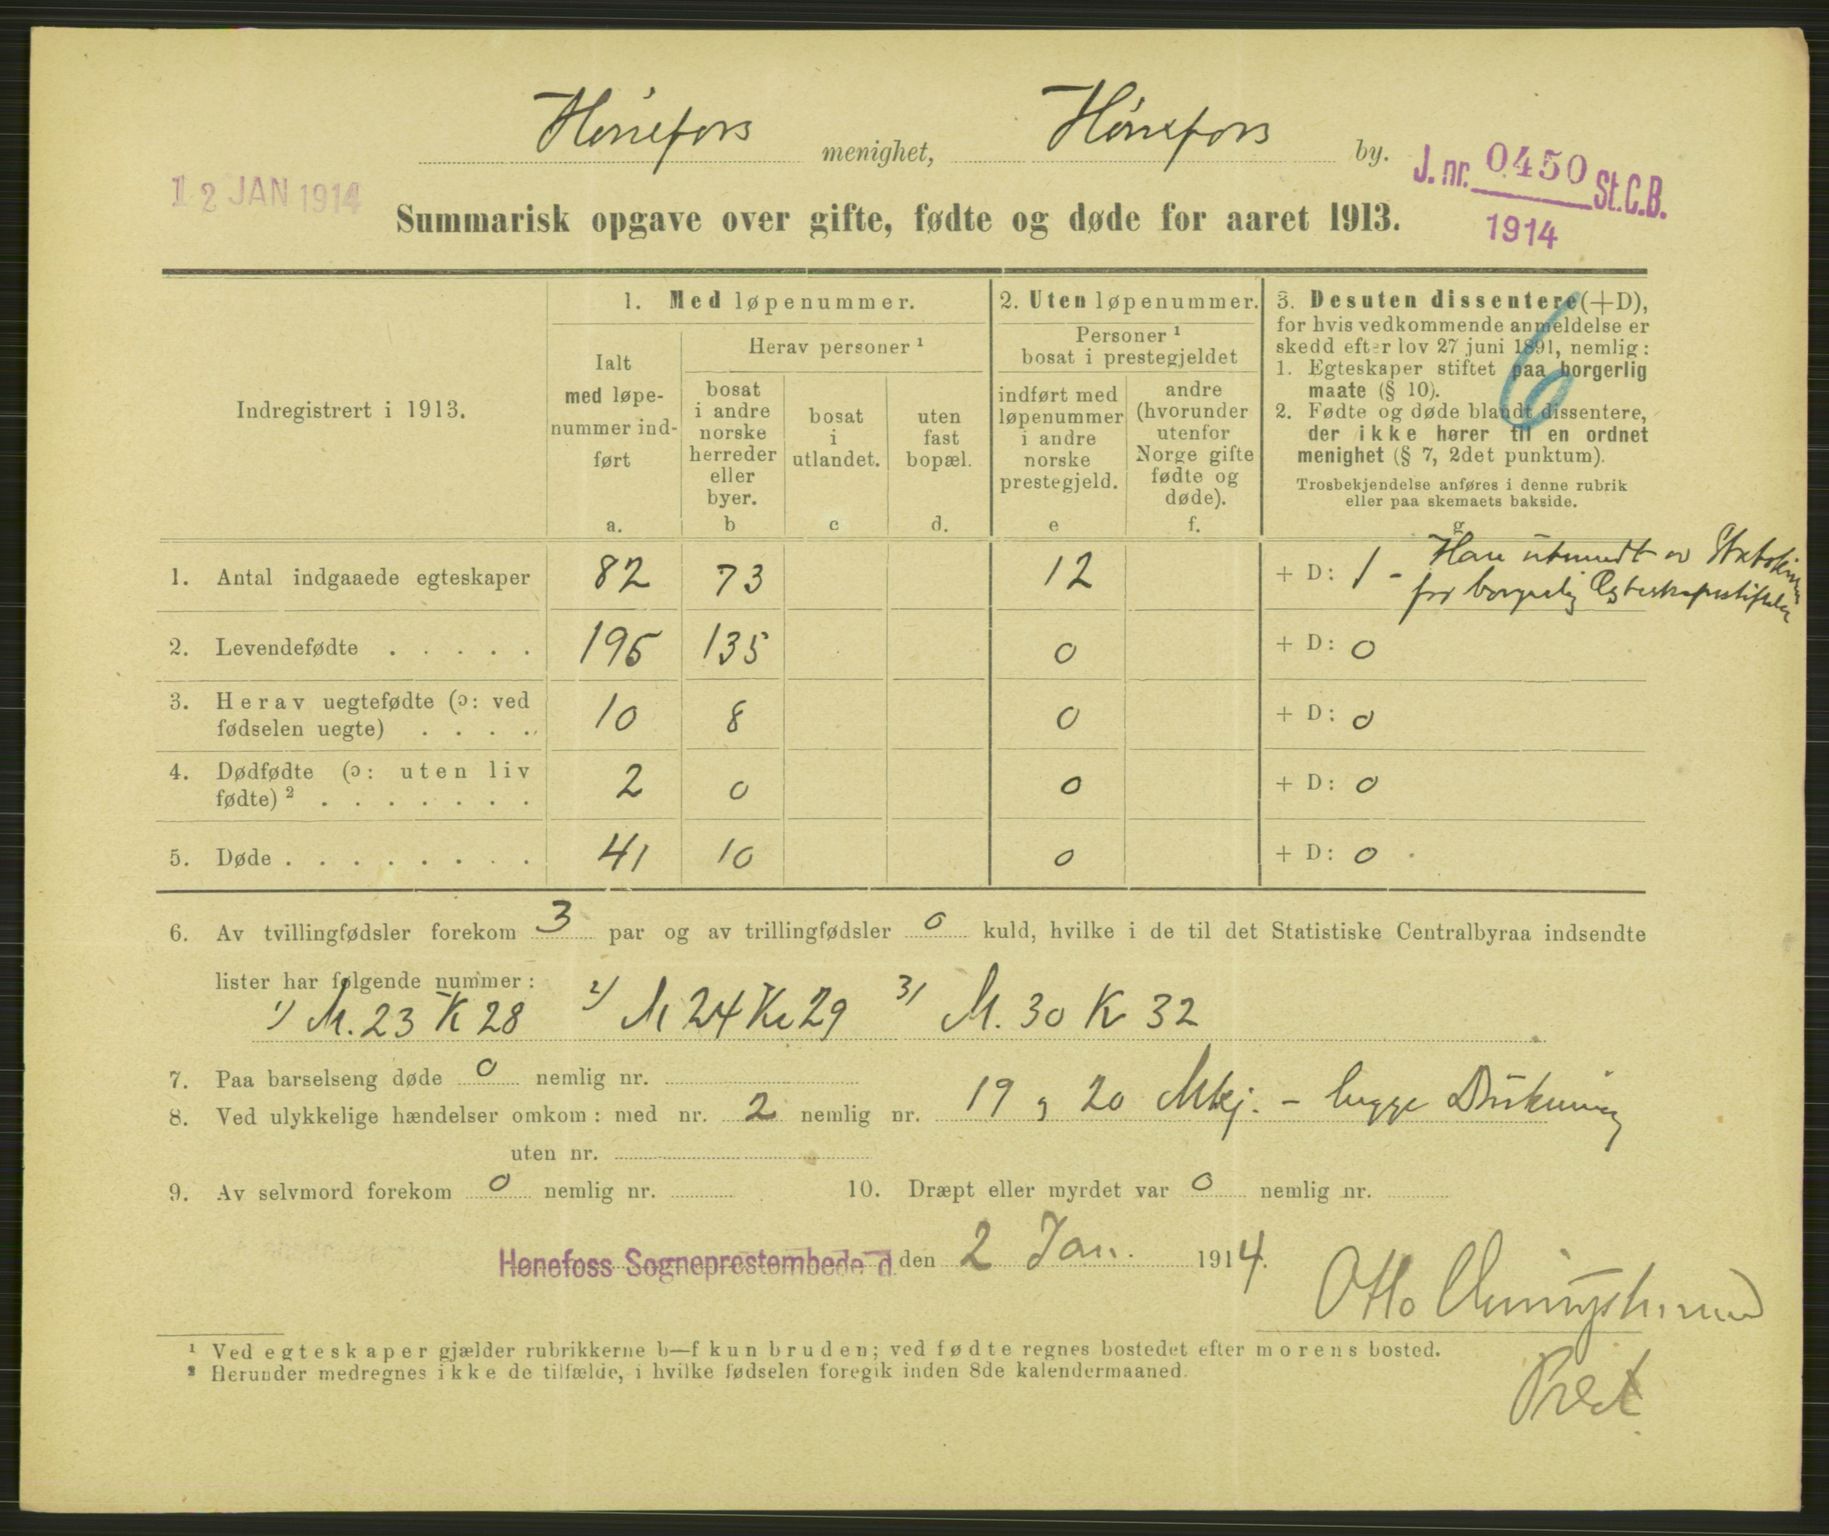 Hønefors menighet, Hønefors by.
12 JAN 1914
J. nr. 0450 St.C.B.
1914
Summarisk opgave over gifte, fødte og døde for aaret 1913.
6
Indregistrert i 1913.
1. Med løpenummer.
Ialt
med løpe-
nummer ind-
ført
a.
Herav personer ¹
bosat
i andre
norske
herreder
eller
byer.
b
bosat
i
utlandet.
c
uten
fast
bopæl.
d.
2. Uten løpenummer.
Personer ¹
bosat i prestegjeldet
indført med
løpenummer
i andre
norske
prestegjeld.
e
andre
(hvorunder
utenfor
Norge gifte
fødte og
døde).
f.
3. Desuten dissentere (+D),
for hvis vedkommende anmeldelse er
skedd efter lov 27 juni 1891, nemlig:
1. Egteskaper stiftet paa borgerlig
maate (§ 10).
2. Fødte og døde blandt dissentere,
der ikke hører til en ordnet
menighet (§ 7, 2det punktum).
Trosbekjendelse anføres i denne rubrik
eller paa skemaets bakside.
g
1. Antal indgaaede egteskaper 82 73 12 + D: 1 - Han utmeldt av
for borgerlig
2. Levendefødte . . . . . 195 135 0 + D: 0
3. Herav uegtefødte (ɔ: ved
fødselen uegte) . . . . 10 8 0 + D: 0
4. Dødfødte (ɔ: uten liv
fødte) ² . . . . . . . 2 0 0 + D: 0
5. Døde . . . . . . . . 41 10 0 + D: 0
6. Av tvillingfødsler forekom 3 par og av trillingfødsler 0 kuld, hvilke i de til det Statistiske Centralbyraa indsendte
lister har følgende nummer:
1) M. 23 K 28 2) M 24 K 29 3) M. 30 K 32
7. Paa barselseng døde 0 nemlig nr.
8. Ved ulykkelige hændelser omkom: med nr. 2 nemlig nr. 19 og 20 Mkj. - begge Drukning
uten nr.
9. Av selvmord forekom 0 nemlig nr. 10. Dræpt eller myrdet var 0 nemlig nr.
Hønefoss Sogneprestembede d. den 2 Jan. 1914.
Otto
Prest
¹ Ved egteskaper gjælder rubrikkerne b—f kun bruden; ved fødte regnes bostedet efter morens bosted.
² Herunder medregnes ikke de tilfælde, i hvilke fødselen foregik inden 8de kalendermaaned.